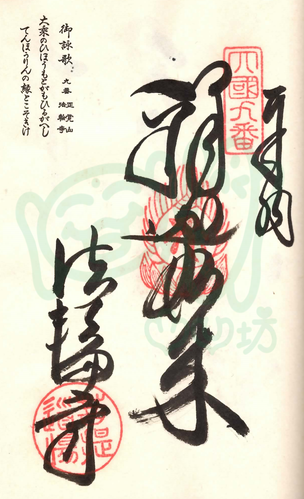 四國九番
釈迦如来
法輪寺
菩提道場
御詠歌
九番 正覚山 法輪寺
大乗のひほうもとがもひるがへし
てんぽうりんの縁とこそきけ